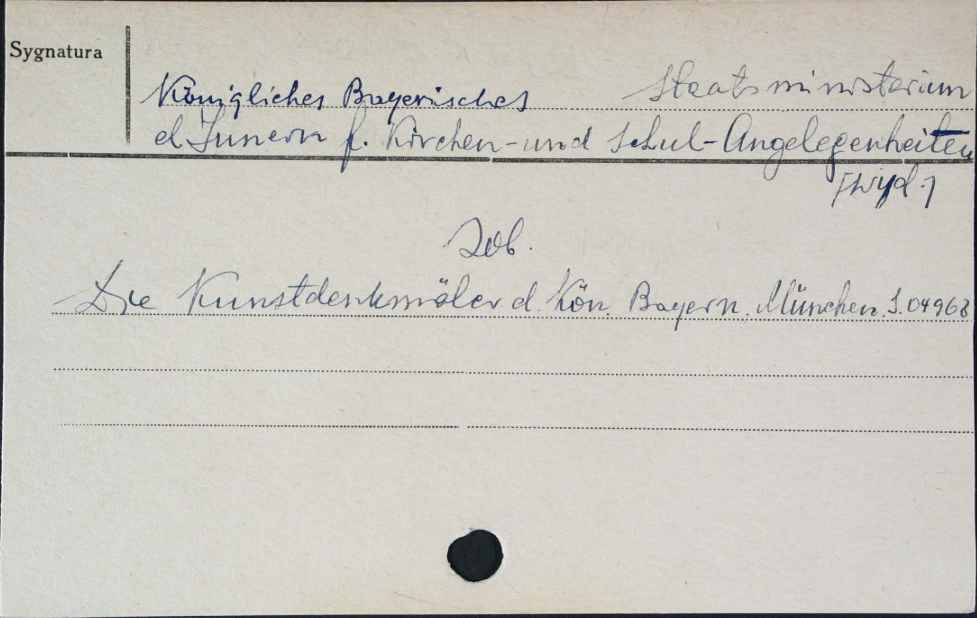 Sygnatura
Königliches Bayerisches Staatsministerium
d. Innern f. Kirchen- und Schul-Angelegenheiten
[wyd.]
Zob.
Die Kunstdenkmäler d. Kön. Bayern. München. S.04968